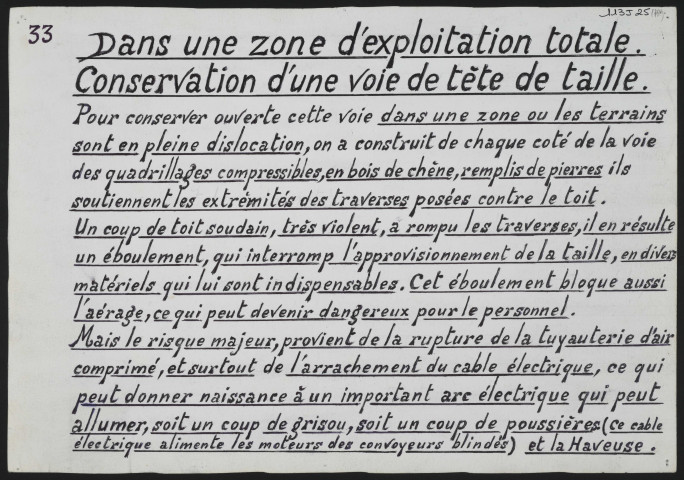 113J25
33
Dans une zone d'exploitation totale.
Conservation d'une voie de tête de taille.
Pour conserver ouverte cette voie dans une zone ou les terrains
sont en pleine dislocation, on a construit de chaque coté de la voie
des quadrillages compressibles, en bois de chêne, remplis de pierres ils
soutiennent les extrémités des traverses posées contre le toit.
Un coup de toit soudain, très violent, a rompu les traverses, il en résulte
un éboulement, qui interromp l'approvisionnement de la taille, en divers
matériels qui lui sont indispensables. Cet éboulement bloque aussi
l'aérage, ce qui peut devenir dangereux pour le personnel.
Mais le risque majeur, provient de la rupture de la tuyauterie d'air
comprimé, et surtout de l'arrachement du cable électrique, ce qui
peut donner naissance à un important arc électrique qui peut
allumer, soit un coup de grisou, soit un coup de poussières (ce cable
électrique alimente les moteurs des convoyeurs blindés) et la Haveuse.